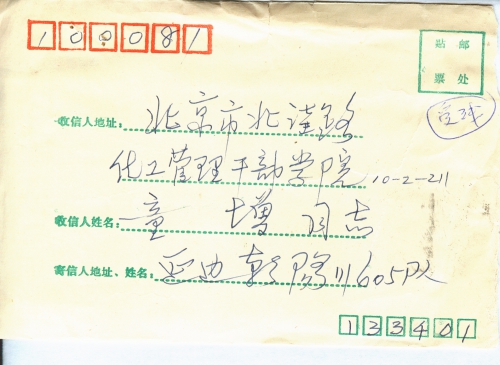 100081
贴 邮
票 处
收信人地址：北京市北洼路
化工管理干部学院 10-2-211
收信人姓名：童增同志
寄信人地址、姓名：605队
133401